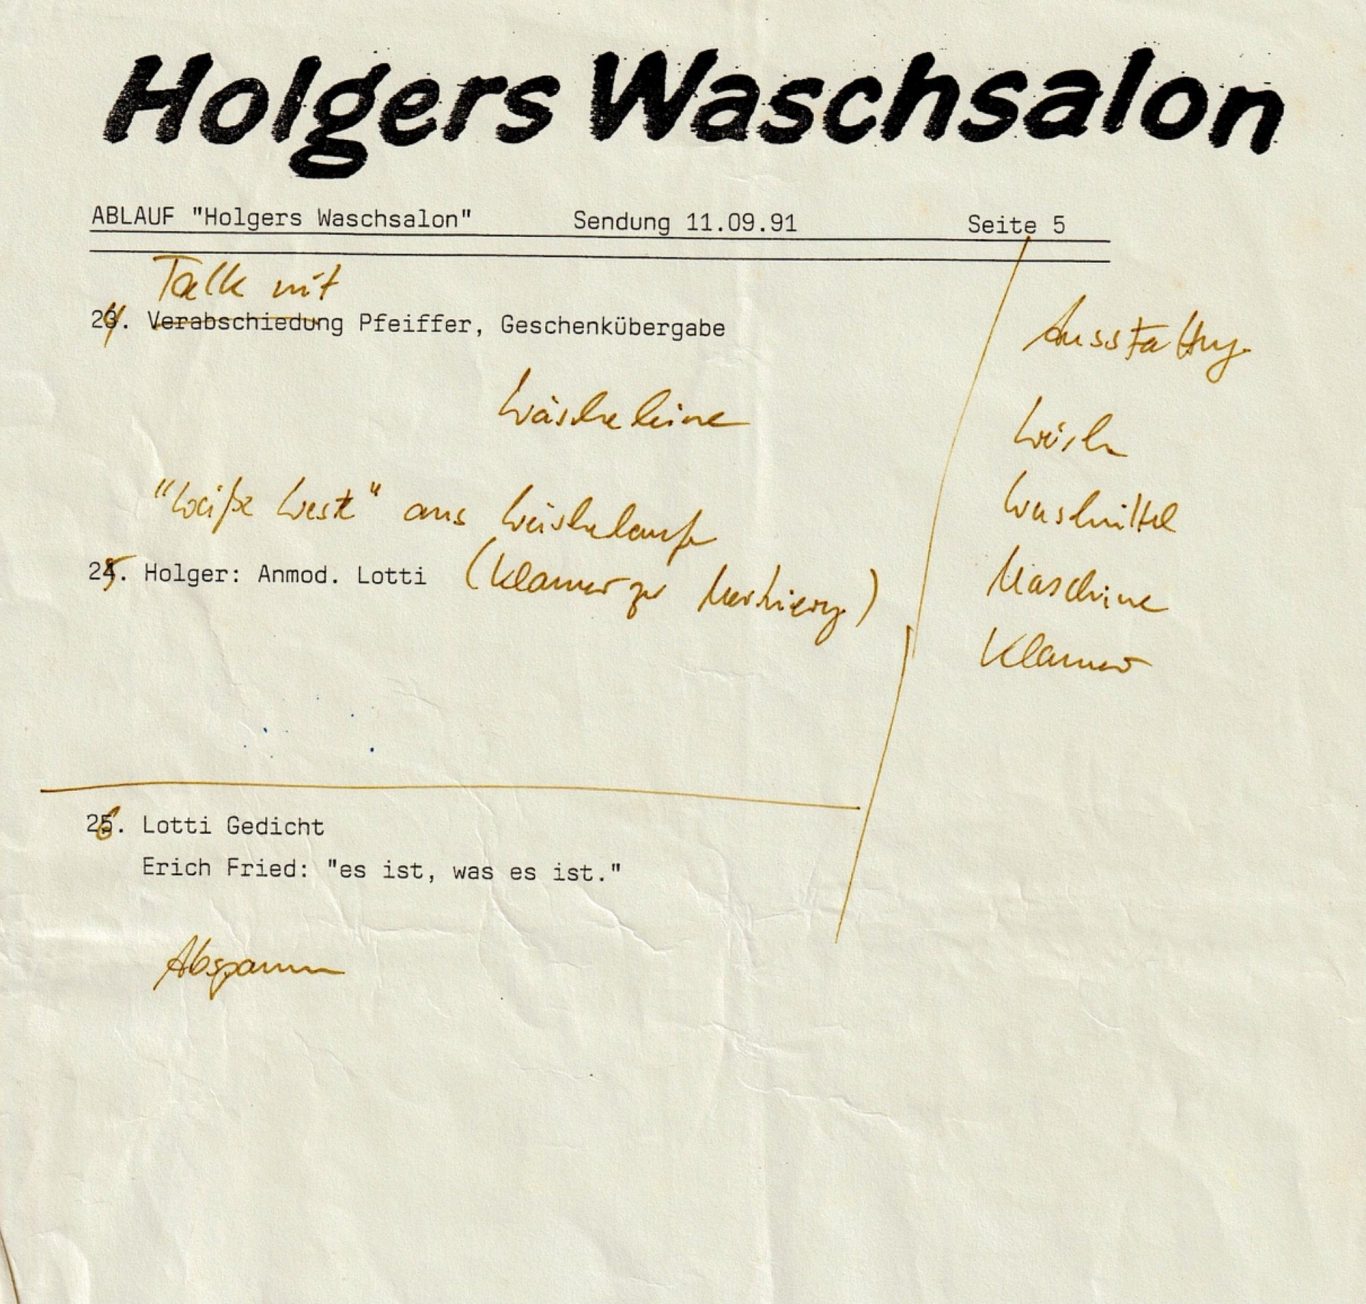 Holgers Waschsalon
ABLAUF "Holgers Waschsalon" Sendung 11.09.91 Seite 5
Talk mit
24. Verabschiedung Pfeiffer, Geschenkübergabe
Ausstattung
Wäscheleine
Wäsche
"Weiße Weste" aus
Waschmittel
25. Holger: Anmod. Lotti (Klammer zur
Maschine
Klammer
26. Lotti Gedicht
Erich Fried: "es ist, was es ist."
Abspann